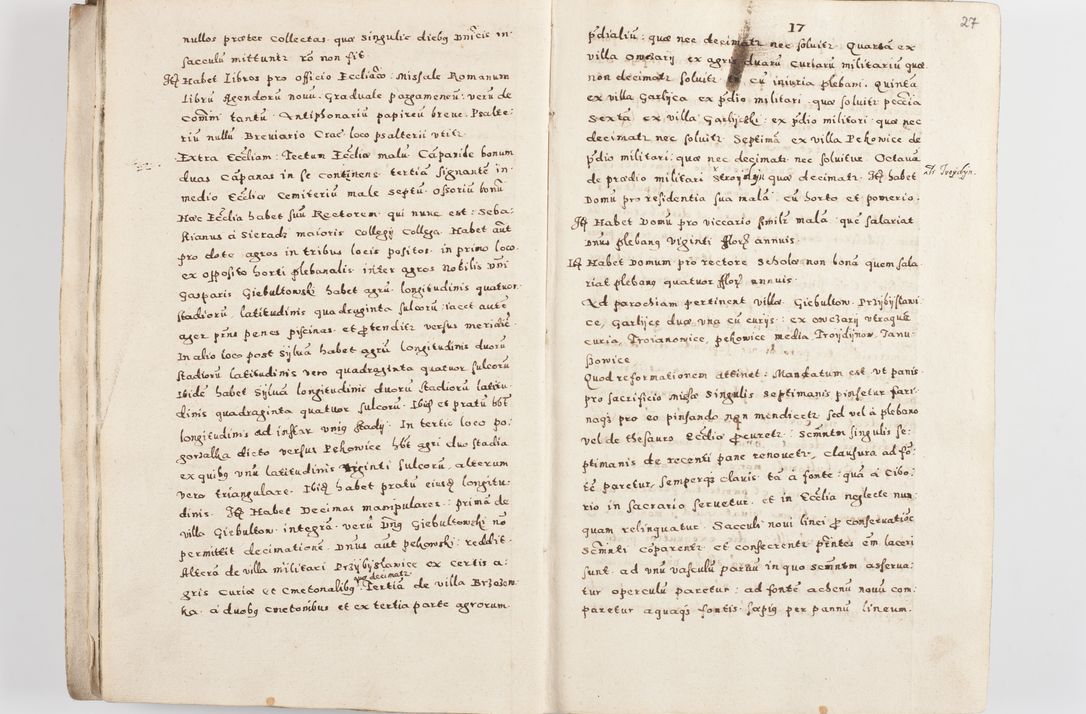 nullos præter collectas quæ singulis diebꝰ Dñicis in
sacculũ mittuntr rõ non fit
Itꝫ Habet Libros pro officio Eccliæ: Missale Romanum
Librũ Agendorũ nouũ. Graduale pargamenũ: verũ de
Com̃i tantũ. Antiphonariũ papireũ breue. Psalte-
riũ nullũ Breuiario Crac: loco psalterii vtitr.
Extra Eccliam: Tectum Eccliæ malũ. Cãpanile bonum
duas Cãpanas in se continens. tertiã signantẽ in
medio Eccliæ. Cemiteriũ male septũ. Ossoriũ bonũ
Hæc Ecclia habet suũ Rectorem qui nunc est: Seba-
stianus à Sieradz maioris collegÿ collega. Habet aũt
pro dote agros in tribus locis positos. in primo loco
ex opposito horti plebanalis inter agros Nobilis Dñi
Gasparis Giebultowski habet agrũ longitudinis quatuor
stadiorũ latitudinis quadraginta sulcorũ. iacet autẽ
ager prñs penes piscinas. et ꝓtenditr versus meridiẽ
In alio loco post sÿluã habet agrũ longitudinis duorũ
stadiorũ latitudinis vero quadraginta quatuor sulcorũ
Ibidẽ habet sÿluã longitudinis duorũ stadiorũ latitu-
dinis quadraginta quatuor sulcorũ. Ibiꝫ et pratũ hbt
longitudinis ad instar vniꝰ stadÿ. In tertio loco po-
gorzalka dicto versus Pekowice hbt agri duo stadia
ex quibꝰ vnũ latitudinis viginti sulcorũ. alterum
vero triangulare. Ibiꝫ habet pratũ eiusꝫ longitu-
dinis. Itꝫ Habet Decimas manipulares: primã de
villa Giebultow. integrã. verũ Dñꝰ Giebultowski nõ
permittit decimationẽ. Dñus aũt pekowski: reddit.
Alterã de villa militari Przÿbÿslawice ex certis a-
gris Curiæ et Cmetonalibꝰ quæ decimatr. Tertiã de villa Brzozow-
ka. à duobꝰ cmetonibus et ex tertia parte agrorum
17
27
p̃dialiũ: quæ nec decimatr nec soluitr. Quartã ex
villa Owczarÿ ex agris duarũ curiarũ militariũ quæ
non decimatr soluitr cũ iniuria plebani. Quintã
ex villa Garlÿca ex p̃dio militari quæ soluitr pecc̃ia
Sextã ex villa Garlÿczki: ex p̃dio militari: quæ nec
decimatr nec soluitr. Septimã ex villa Pekowice de
p̃dio militari: quæ nec decimatr nec soluitur. Octauã
de prædio militari Troÿdÿn quæ decimatr. Itꝫ habet
Domũ pro residentia sua malã. cũ horto et pomerio.
Itꝫ Habet Domũ pro viccario similr malã que salariat
Dñus plebanꝰ viginti florꝫ annuis.
Itꝫ Habet Domum pro rectore scholæ non bonã quem sala-
riat plebanꝰ quatuor florꝫ annuis
Ad parochiam pertinent villæ. Giebultow. Przÿbÿslawi-
ce, Garlÿce duæ vna cũ curÿs: ex owczarÿ vtraque
curia, Troianowice, pekowice media, Troÿdÿnow, Janu-
szowice
Quod reformationem attinet: Mandatum est vt panis
pro sacrificio missæ singulis septimanis pinsetur fari-
naqꝫ pro eo pinsando non mendicetr sed vel à plebano
vel de thesauro Eccliæ ꝓcuretr: Scm̃ntm singulis se-
ptimanis de recenti pane renouetr, Clausura ad fõ-
tẽ paretur, semperqꝫ clauis tã à fonte quã à Cibo-
rio in sacrario seruetur. et in Ecclia neglecte nun-
quam relinquatur. Sacculi noui linei ꝓ conseruatioẽ
Scm̃nti cõparentr et consecrentr prñtes em̃ laceri
sunt. ad vnũ vasculũ paruũ in quo scm̃ntm asserua-
tur operculũ paretur: ad fontẽ achenũ nouũ com-
paretur aquaqꝫ fontis sæpiꝰ per pannũ lineum.